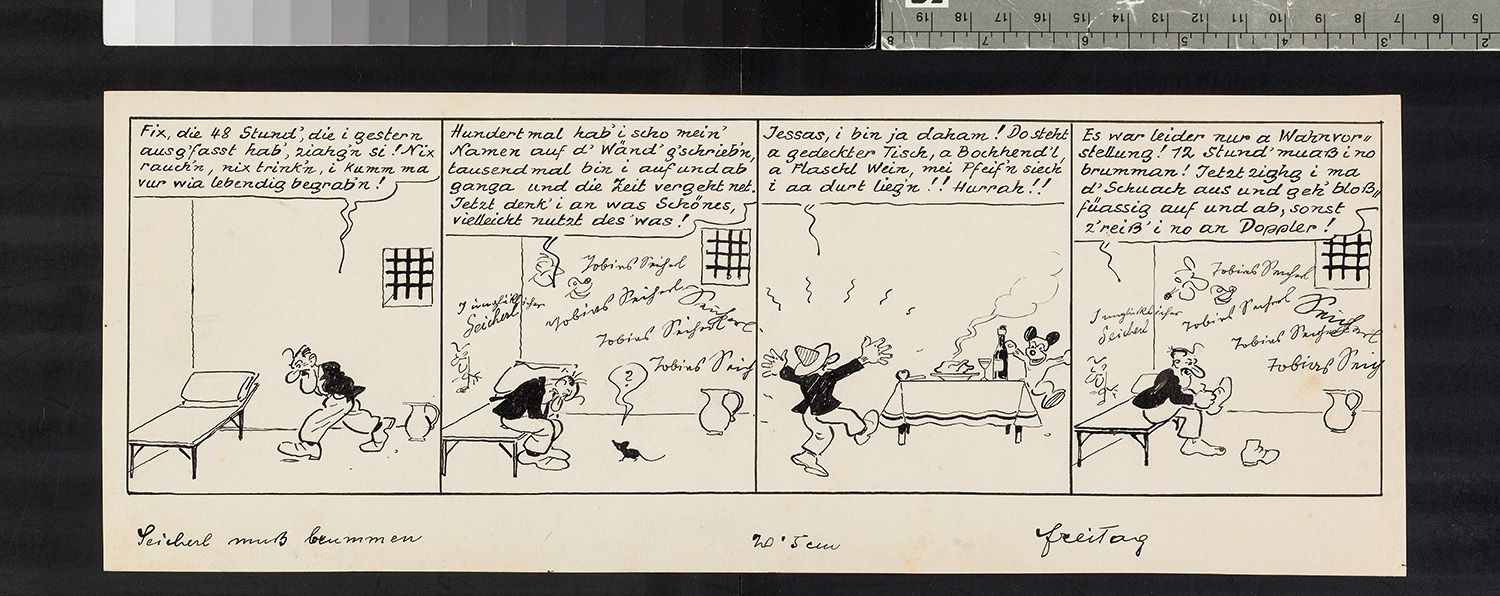 Fix, die 48 Stund', die i gestern
ausg'fasst hab', ziahg'n si! Nix
rauch'n, nix trink'n, i kumm ma
vur wia lebendig begrab'n!
Hundertmal hab' i scho mein'
Namen auf d' Wänd' g'schrieb'n,
tausendmal bin i auf und ab
ganga und die Zeit vergeht net.
Jetzt denk' i an was Schönes,
vielleicht nutzt des was!
Tobias Seicherl
I unglücklicher
Seicherl
Tobias Seicherl
Seicherl
Tobias Seicherl
Tobias Seich
?
Jessas, i bin ja daham! Do steht
a gedeckter Tisch, a Bachhend'l,
a Flaschl Wein, mei Pfeif'n siech
i aa durt lieg'n!! Hurrah!!
Es war leider nur a Wahnvor„
stellung! 12 Stund' muaß i no
brumman! Jetzt zighg i ma
d' Schuach aus und geh' bloß„
füassig auf und ab, sonst
z'reiß' i no an Doppler!
Tobias Seicherl
I unglücklicher
Seicherl
Tobias Seicherl
Seicherl
Tobias Seicherl
Tobias Seich
Seicherl muß brummen
20'5 cm
Freitag
19 18 17 16 15 14 13 12 11 10 9 8 7 6 5
8 7 6 5 4 3 2